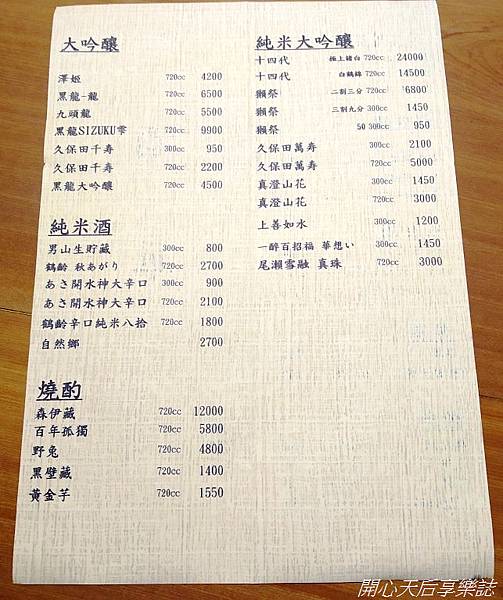 大吟釀
澤姬 720cc 4200
黑龍-龍 720cc 6500
九頭龍 720cc 5500
黑龍SIZUKU雫 720cc 9900
久保田千寿 300cc 950
久保田千寿 720cc 2200
黑龍大吟釀 720cc 4500
純米酒
男山生貯藏 300cc 800
鶴齡 秋あがり 720cc 2700
あさ開水神大辛口 300cc 900
あさ開水神大辛口 720cc 2100
鶴齡辛口純米八拾 720cc 1800
自然鄉 2700
燒酌
森伊藏 720cc 12000
百年孤獨 720cc 5800
野兔 720cc 4800
黑壁藏 720cc 1400
黃金芋 720cc 1550
純米大吟釀
十四代 極上諸白 720cc 24000
十四代 白鶴錦 720cc 14500
獺祭 二割三分 720cc 6800
獺祭 三割九分 300cc 1450
獺祭 50 300cc 950
久保田萬寿 300cc 2100
久保田萬寿 720cc 5000
真澄山花 300cc 1450
真澄山花 720cc 3000
上善如水 300cc 1200
一醉百招福 華想い 300cc 1450
尾瀨雪融 真珠 720cc 3000
開心天后享樂誌